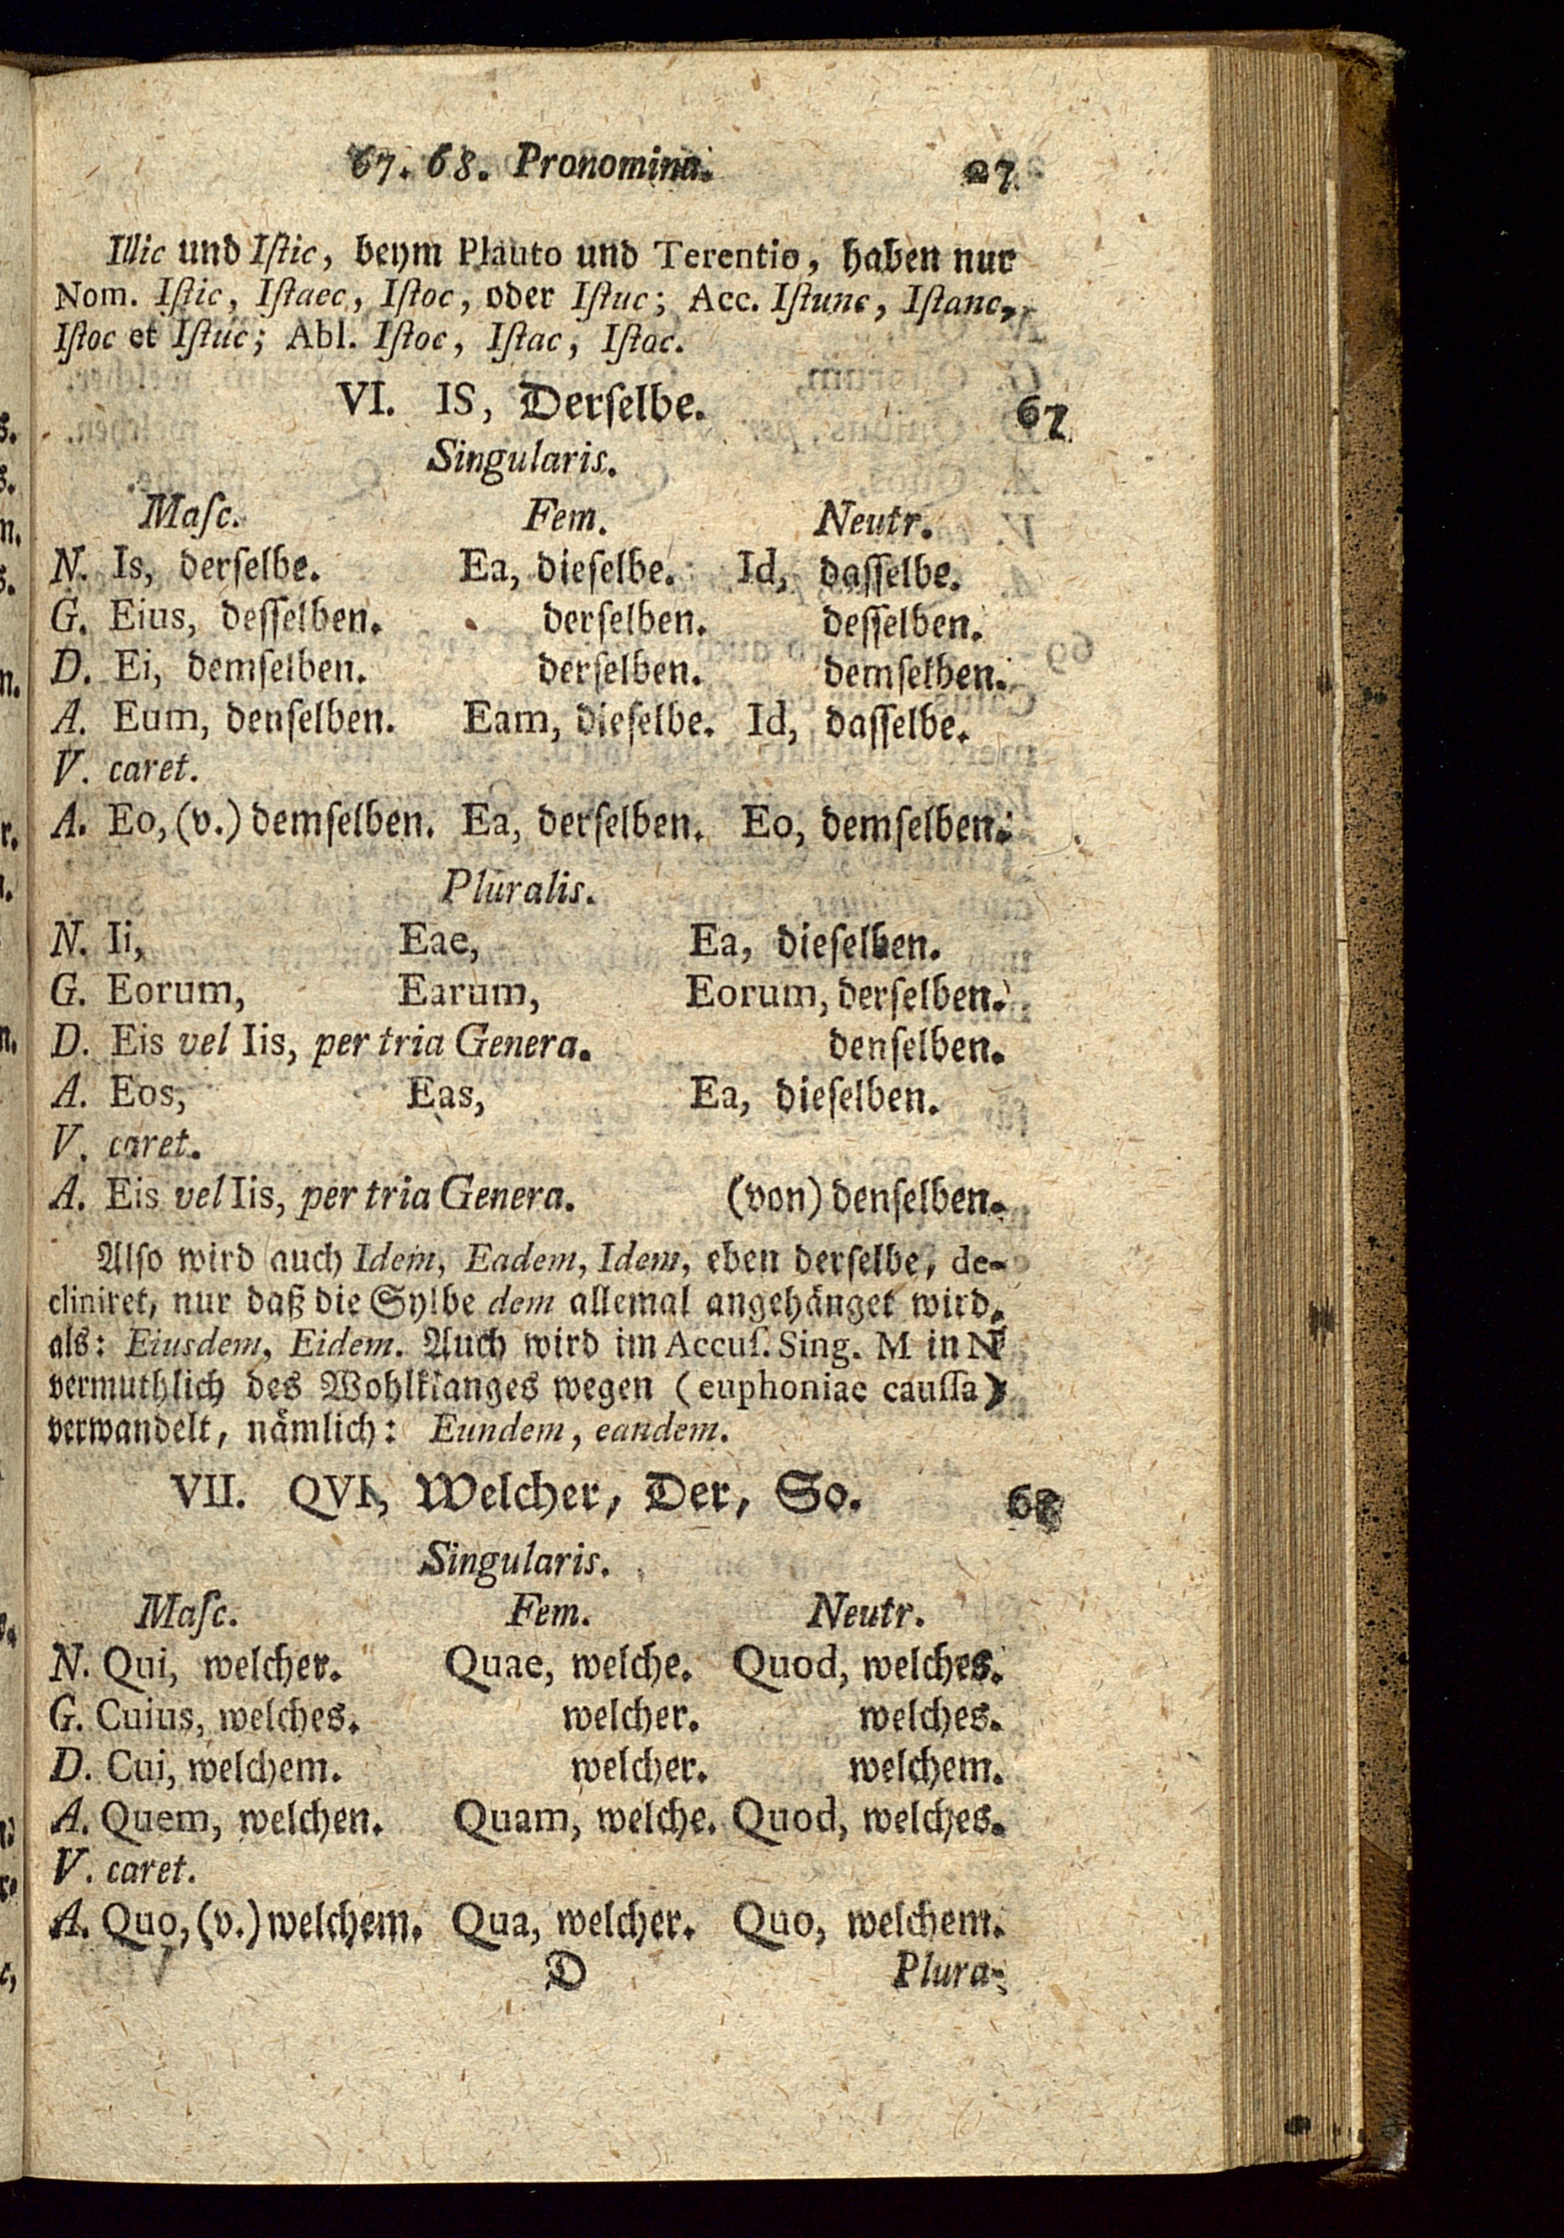 67. 68. Pronomina. 27
Illic und Iſtic, beym Plauto und Terentio, haben nur
Nom. Iſtic, Iſtaec, Iſtoc, oder Iſtuc; Acc. Iſtunc, Iſtanc,
Iſtoc et Iſtuc; Abl. Iſtoc, Iſtac, Iſtoc.
VI. IS, Derſelbe. 67
Singularis.
Maſc. Fem. Neutr.
N. Is, derſelbe. Ea, dieſelbe. Id, daſſelbe.
G. Eius, deſſelben. derſelben. deſſelben.
D. Ei, demſelben. derſelben. demſelben.
A. Eum, denſelben. Eam, dieſelbe. Id, daſſelbe.
V. caret.
A. Eo, (v.) demſelben. Ea, derſelben. Eo, demſelben.
Pluralis.
N. Ii, Eae, Ea, dieſelben.
G. Eorum, Earum, Eorum, derſelben.
D. Eis vel Iis, per tria Genera. denſelben.
A. Eos, Eas, Ea, dieſelben.
V. caret.
A. Eis vel Iis, per tria Genera. (von) denſelben.
Alſo wird auch Idem, Eadem, Idem, eben derſelbe, de-
cliniret, nur daß die Sylbe dem allemal angehänget wird,
als: Eiusdem, Eidem. Auch wird im Accuſ. Sing. M in N
vermuthlich des Wohlklanges wegen (euphoniae cauſſa)
verwandelt, nämlich: Eundem, eandem.
VII. QVI, Welcher, Der, So. 68
Singularis.
Maſc. Fem. Neutr.
N. Qui, welcher. Quae, welche. Quod, welches.
G. Cuius, welches. welcher. welches.
D. Cui, welchem. welcher. welchem.
A. Quem, welchen. Quam, welche. Quod, welches.
V. caret.
A. Quo, (v.) welchem. Qua, welcher. Quo, welchem.
D Plura-